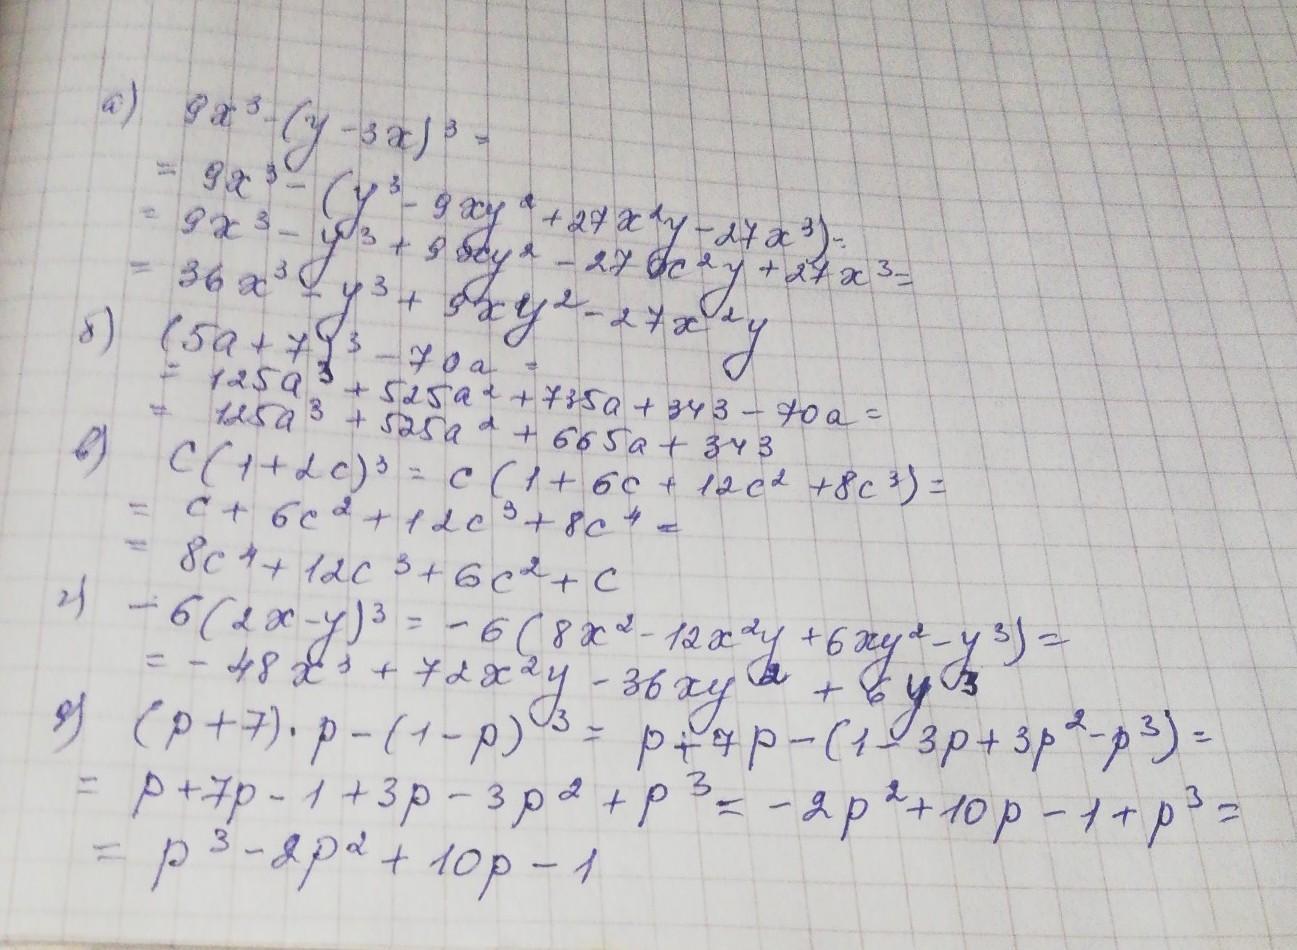 а) 9x³-(y-3x)³=
= 9x³-(y³-9xy²+27x²y-27x³)=
= 9x³-y³+9xy²-27x²y+27x³=
= 36x³-y³+9xy²-27x²y
б) (5a+7)³-70a=
= 125a³+525a²+735a+343-70a=
= 125a³+525a²+665a+343
в) C(1+2c)³=c(1+6c+12c²+8c³)=
= c+6c²+12c³+8c⁴=
= 8c⁴+12c³+6c²+c
г) -6(2x-y)³=-6(8x²-12x²y+6xy²-y³)=
= -48x³+72x²y-36xy²+6y³
д) (p+7)·p-(1-p)³=p+7p-(1-3p+3p²-p³)=
= p+7p-1+3p-3p²+p³=-2p²+10p-1+p³=
= p³-2p²+10p-1